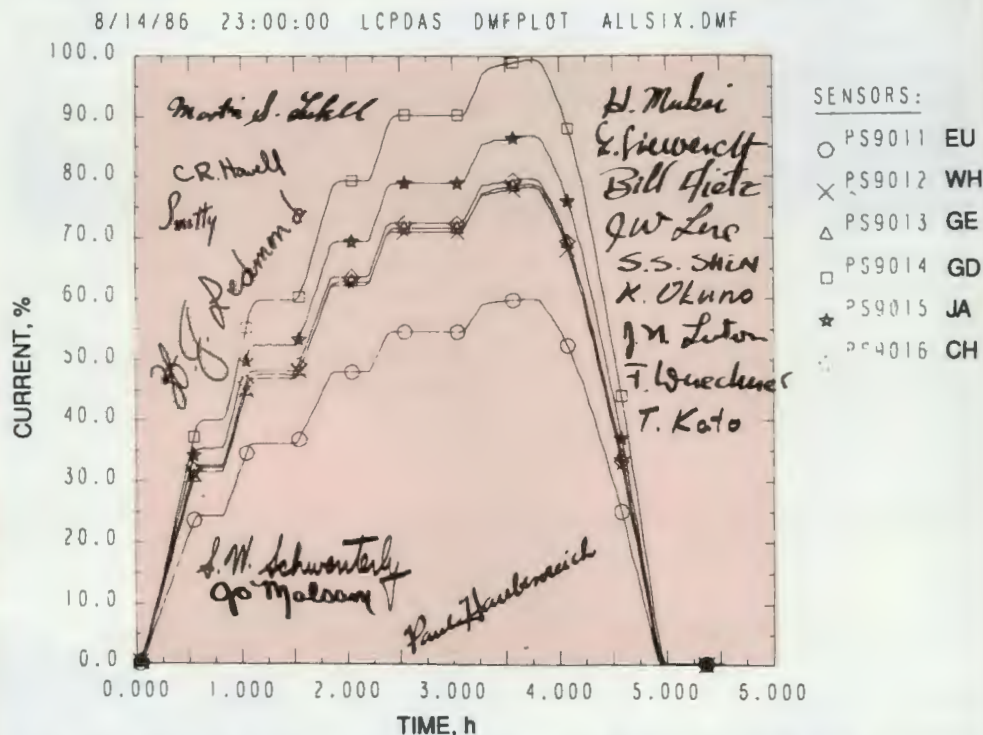 8/14/86 23:00:00 LCPDAS DMFPLOT ALLSIX.DMF
100.0
90.0
80.0
70.0
60.0
50.0
40.0
30.0
20.0
10.0
0.0
CURRENT, %
0.000 1.000 2.000 3.000 4.000 5.000 5.000
TIME, h
Martin S. Lubell
C.R. Howell
Smitty
Redmond
S.W. Schwenterly
Paul Haubenreich
H. Mukai
Bill Fietz
S.S. SHEN
K. Okuno
J.N. Luton
F. Wuechner
T. Kato
SENSORS:
PS9011 EU
PS9012 WH
PS9013 GE
PS9014 GD
PS9015 JA
PS9016 CH